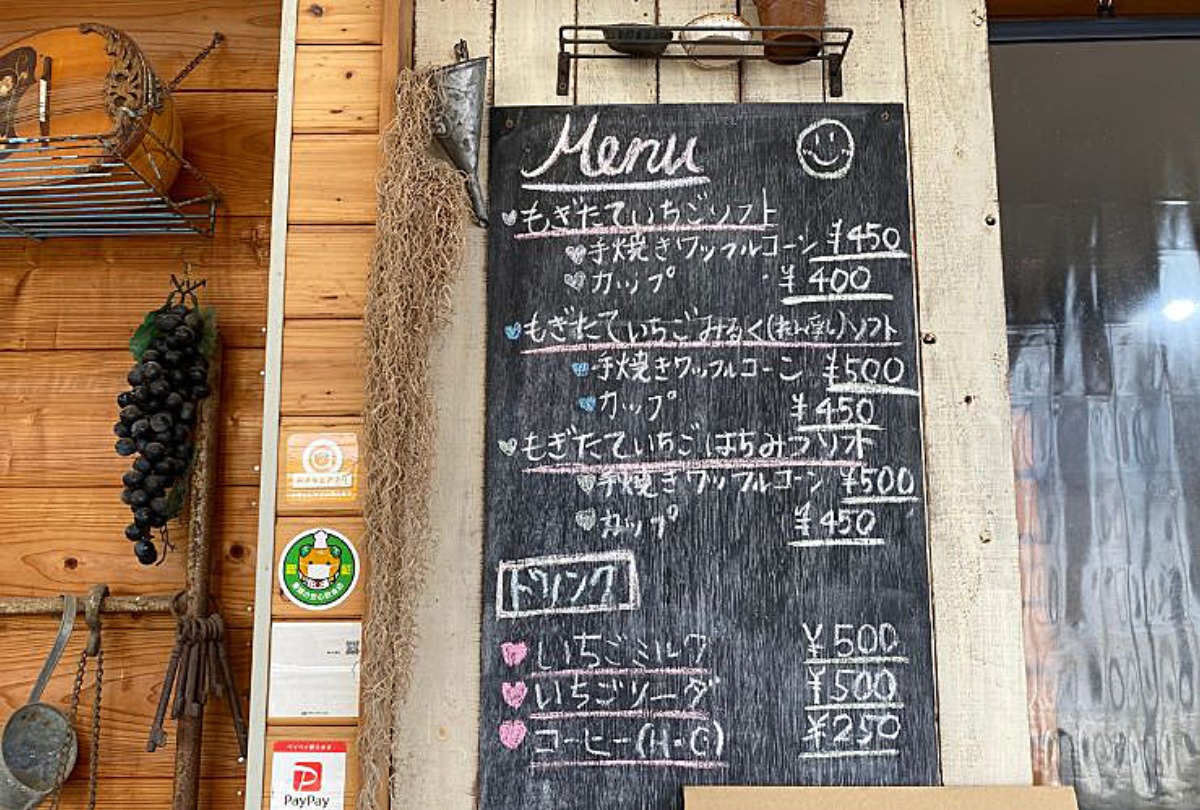 Menu
もぎたていちごソフト
手焼きワッフルコーン ¥450
カップ ¥400
もぎたていちごみるく(れん乳)ソフト
手焼きワッフルコーン ¥500
カップ ¥450
もぎたていちごはちみつソフト
手焼きワッフルコーン ¥500
カップ ¥450
ドリンク
いちごミルク ¥500
いちごソーダ ¥500
コーヒー(H・C) ¥250
PayPay